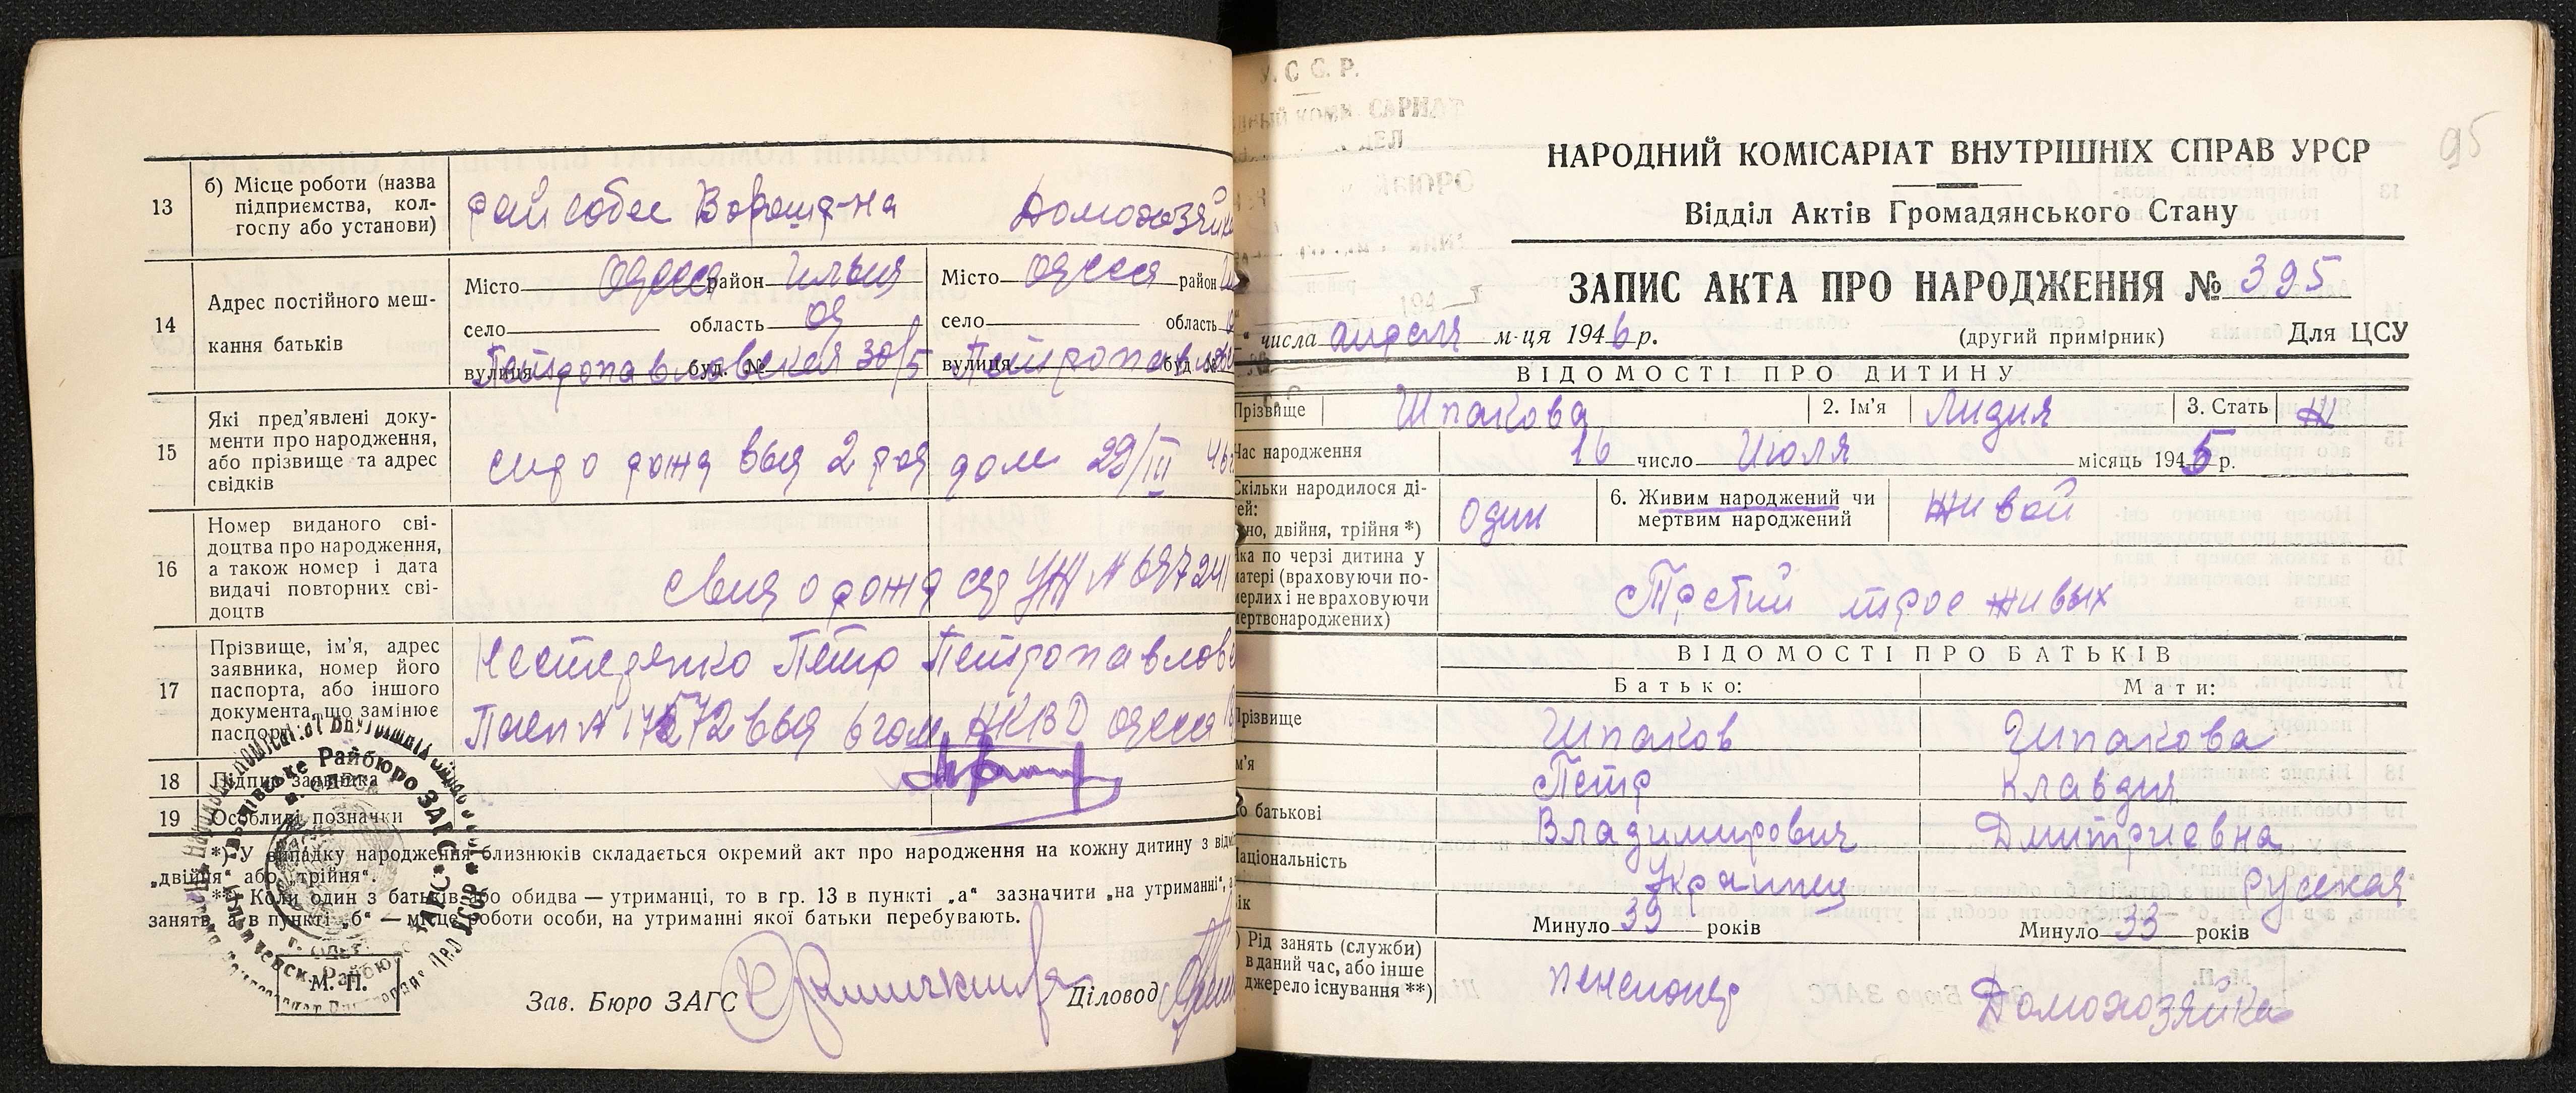 13
б) Місце роботи (назва
підприємства, кол-
госпу або установи)
райсобес Ворошр-на
Домохозяйка
14
Адрес постійного меш-
кання батьків
Місто Одесса район Ильич
село область Од
вулиця Петропавловская буд. № 30/5
Місто Одесса район
село область
вулиця Петропав буд
15
Які пред'явлені доку-
менти про народження,
або прізвище та адрес
свідків
о рожд выд 2 род дом 29/III 46
16
Номер виданого сві-
доцтва про народження,
а також номер і дата
видачі повторних сві-
доцтв
свид о рожд УЖ № 697241
17
Прізвище, ім'я, адрес
заявника, номер його
паспорта, або іншого
документа, що замінює
паспорт
Нестеренко Петр Петропавлов
Пасп № выд 6 гом НКВД Одесса
18
Підпис заявника
19
Особливі позначки
*) У випадку народження близнюків складається окремий акт про народження на кожну дитину з
„двійня" або „трійня".
** Коли один з батьків або обидва — утриманці, то в гр. 13 в пункті „а" зазначити „на утриманні",
занять, а в пункті „б" — місце роботи особи, на утриманні якої батьки перебувають.
М. П.
Зав. Бюро ЗАГС
Діловод
У. С С. Р.
95
НАРОДНИЙ КОМІСАРІАТ ВНУТРІШНІХ СПРАВ УРСР
Відділ Актів Громадянського Стану
ЗАПИС АКТА ПРО НАРОДЖЕННЯ № 395
числа апреля м-ця 1946 р.
(другий примірник)
Для ЦСУ
ВІДОМОСТІ ПРО ДИТИНУ
Прізвище Шпакова
2. Ім'я Лидия
3. Стать Ж
Час народження 16 число Июля місяць 1945 р.
Скільки народилося ді-
тей:
но, двійня, трійня *)
один
6. Живим народжений чи
мертвим народжений
живой
яка по черзі дитина у
матері (враховуючи по-
мерлих і не враховуючи
мертвонароджених)
Третий трое живых
ВІДОМОСТІ ПРО БАТЬКІВ
Батько:
Мати:
Прізвище
Шпаков
Шпакова
м'я
Петр
Клавдия
по батькові
Владимирович
Дмитриевна
Національність
Украинец
русская
ік
Минуло 39 років
Минуло 33 років
) Рід занять (служби)
в даний час, або інше
джерело існування **)
пенсионер
Домохозяйка